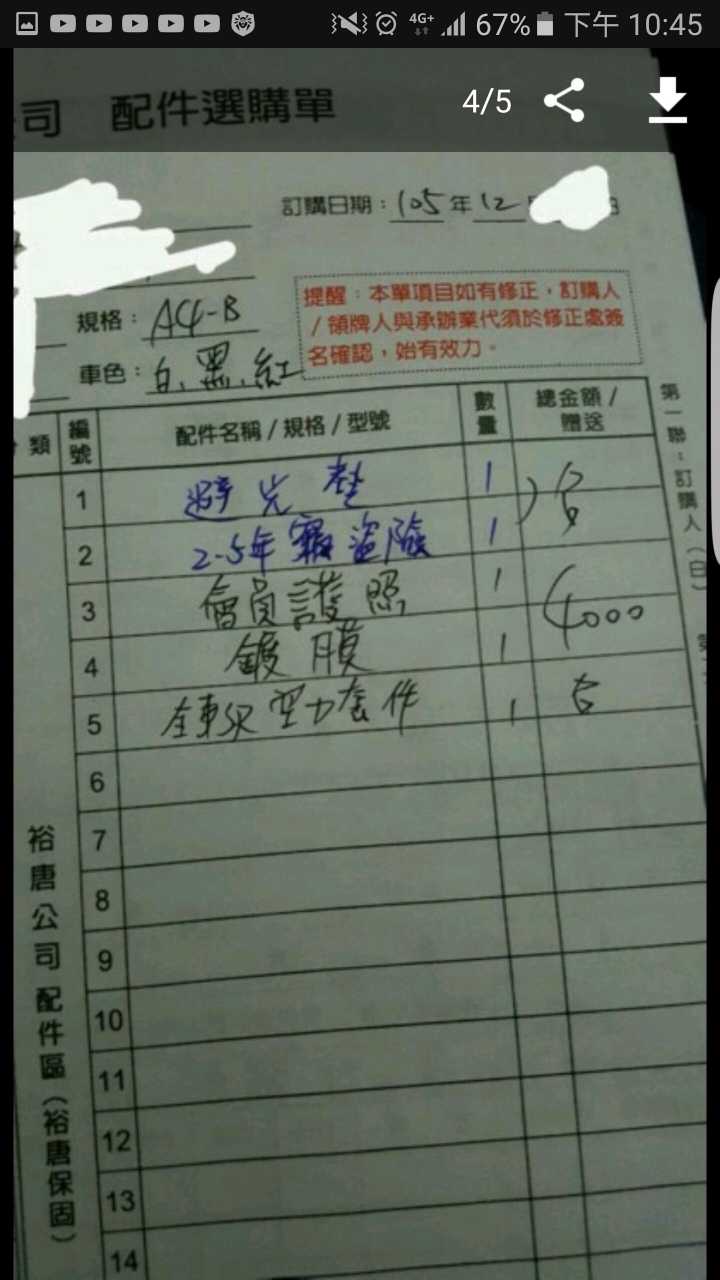 4G+ 67% 下午 10:45
4/5
司 配件選購單
訂購日期：105年12
規格：A4-B
車色：白、黑、紅
提醒：本單項目如有修正，訂購人
/ 領牌人與承辦業代須於修正處簽
名確認，始有效力。
類 編號 配件名稱 / 規格 / 型號 數量 總金額 / 贈送
1 避光墊 1
2 2-5年竊盜險 1
3 會員護照 1 4000
4 鍍膜 1
5 空力套件 1
6
7
8
9
10
11
12
13
14
裕唐公司配件區（裕唐保固）
第一聯：訂購人（白）